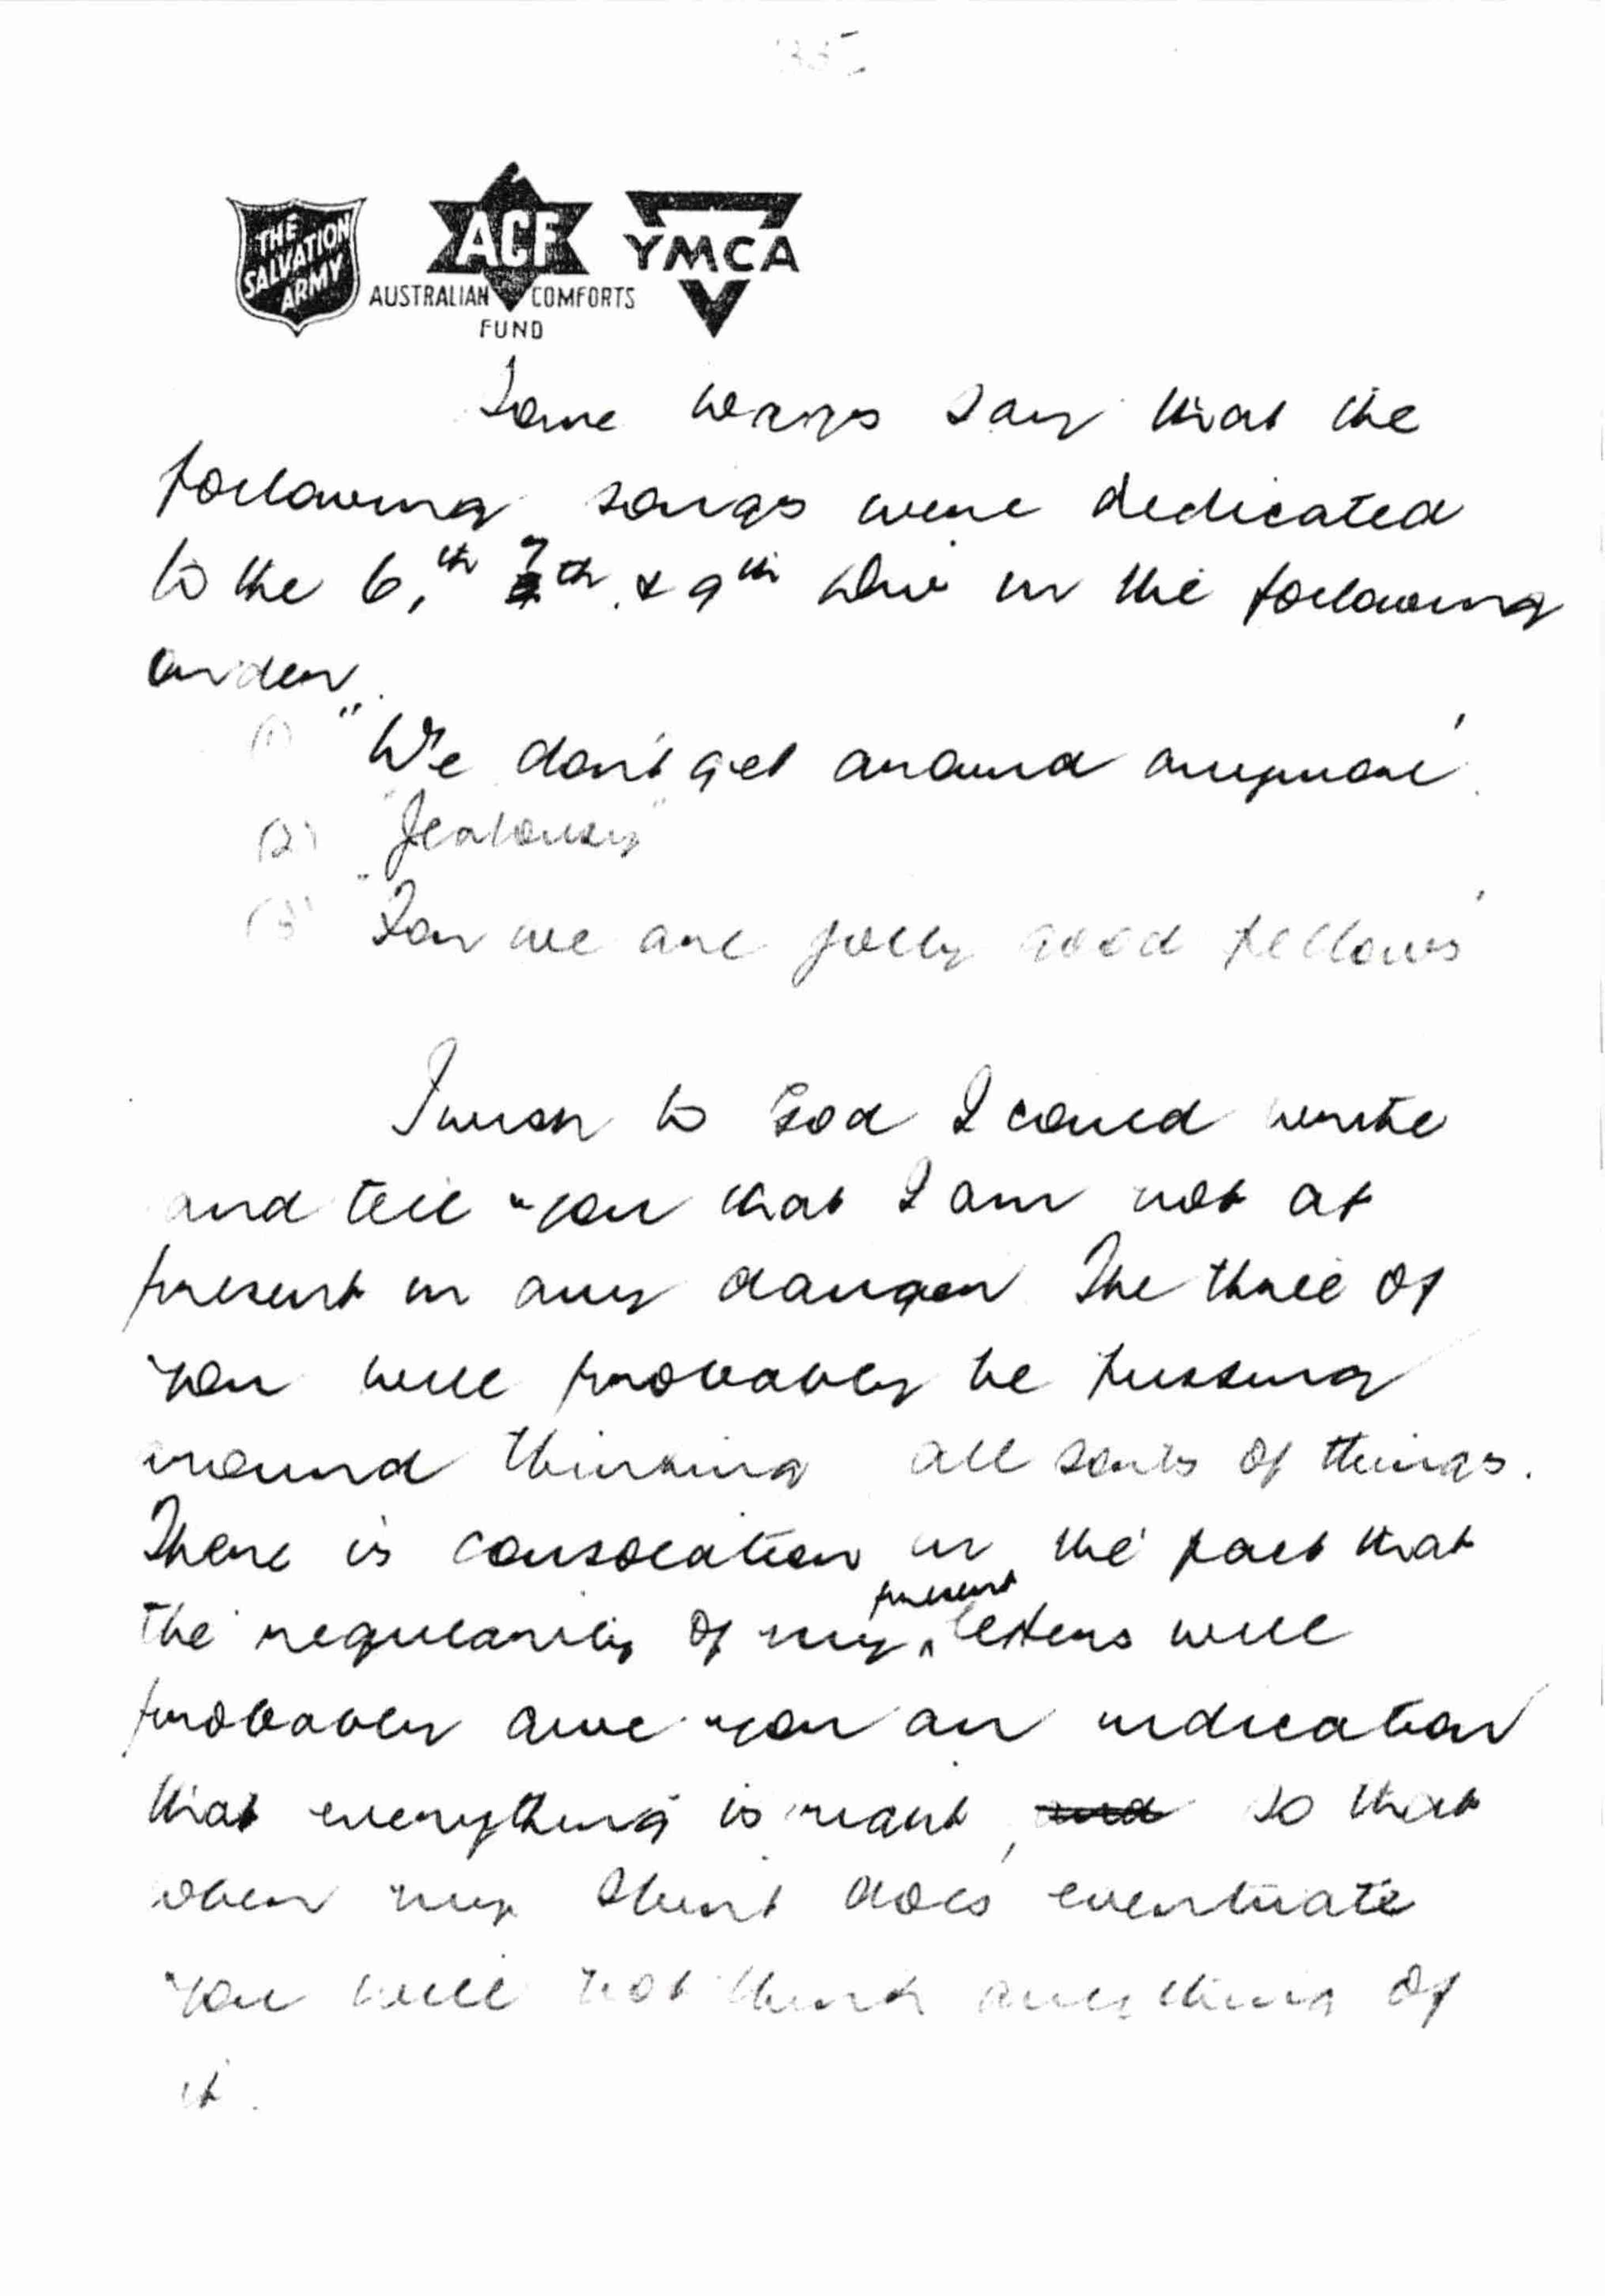 335
THE
SALVATION
ARMY
ACF
AUSTRALIAN COMFORTS
FUND
YMCA
Some wags say that the
following songs were dedicated
to the 6,th 7th & 9th Div in the following
order.
(1) "We don't get around anymore'
(2) "Jealousy"
(3) "For we are jolly good fellows'
I wish to God I could write
and tell you that I am not at
present in any danger. The three of
you will probably be fussing
around thinking all sorts of things.
There is consolation in the fact that
the regularity of my present letters will
probably give you an indication
that everything is right, and so that
when my stunt does eventuate
you will not think anything of
it.